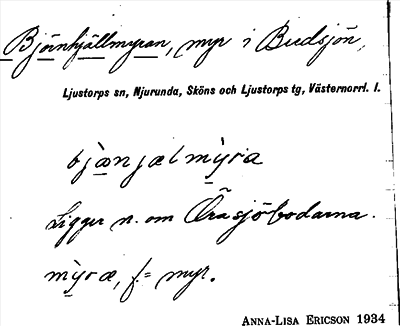 Björnhjällmyran, myr i Bredsjön,
Ljustorps sn, Njurunda, Sköns och Ljustorps tg, Västernorrl. l.
bjæ̀n jæl mỳra
Ligger n. om Öra sjöbodarna.
mỳræ, f. = myr.
ANNA-LISA ERICSON 1934